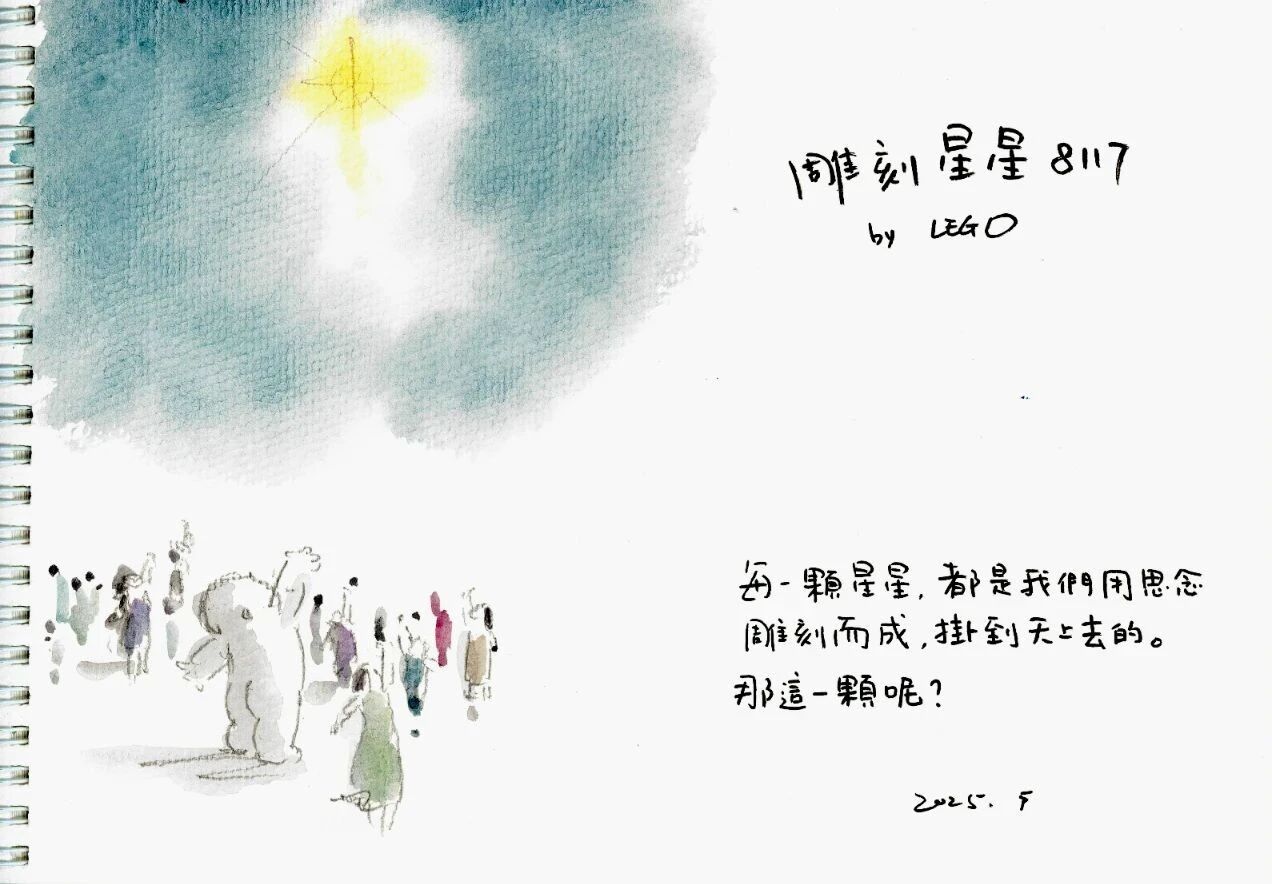 雕刻星星 8117
by LEGO
每一顆星星，都是我們用思念
雕刻而成，掛到天上去的。
那這一顆呢？
2025. 5